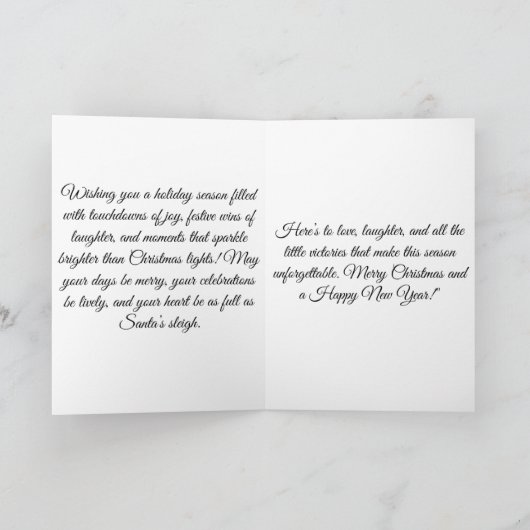 Wishing you a holiday season filled
with touchdowns of joy, festive wins of
laughter, and moments that sparkle
brighter than Christmas lights! May
your days be merry, your celebrations
be lively, and your heart be as full as
Santa's sleigh.
Here's to love, laughter, and all the
little victories that make this season
unforgettable. Merry Christmas and
a Happy New Year!"